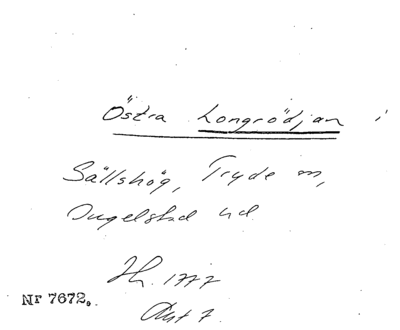 Östra Longrödjan i
Sällshög, Tryde sn,
Ingelstad hd
Hh. 1777
Akt 7
Nr 7672.